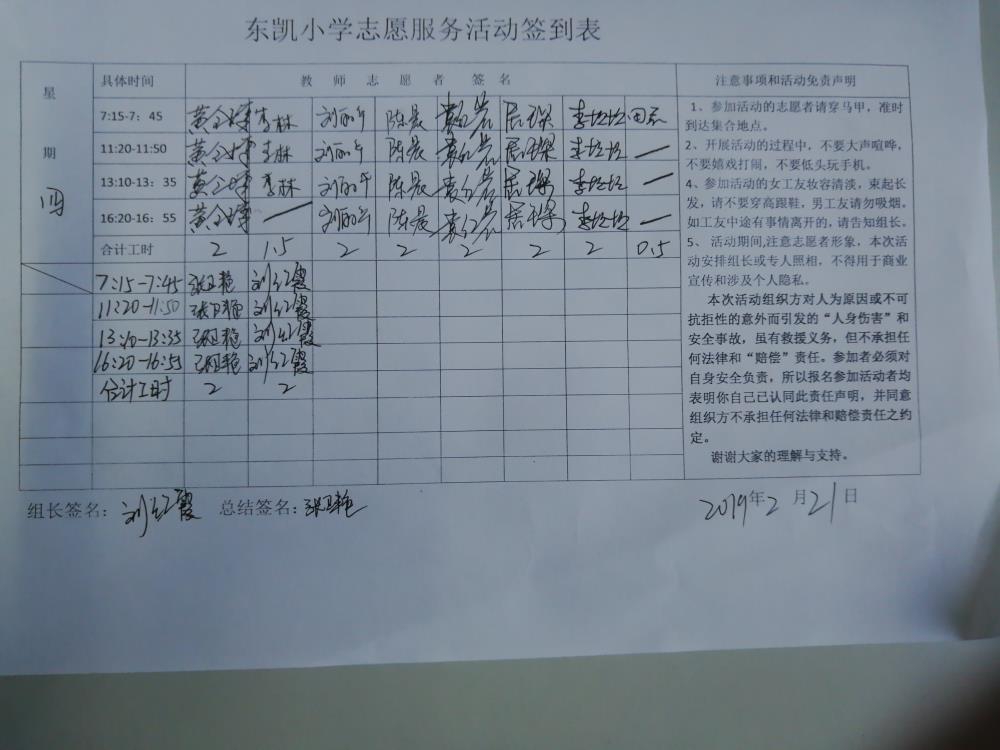 东凯小学志愿服务活动签到表
星期 四
具体时间 教师志愿者签名 注意事项和活动免责声明
7:15-7：45 李林 刘丽 陈晨 田
11:20-11:50 李林 刘丽 陈晨 —
13:10-13：35 李林 刘丽 陈晨 —
16:20-16：55 — 刘丽 陈晨 —
合计工时 2 1.5 2 2 2 2 2 0.5
7:15-7:45 张卫艳 刘红霞
11:20-11:50 张卫艳 刘红霞
13:10-13:35 张卫艳 刘红霞
16:20-16:55 张卫艳 刘红霞
合计工时 2 2
1、参加活动的志愿者请穿马甲，准时
到达集合地点。
2、开展活动的过程中，不要大声喧哗，
不要嬉戏打闹，不要低头玩手机。
4、参加活动的女工友妆容清淡，束起长
发，请不要穿高跟鞋，男工友请勿吸烟。
如工友中途有事情离开的，请告知组长。
5、 活动期间,注意志愿者形象，本次活
动安排组长或专人照相，不得用于商业
宣传和涉及个人隐私。
本次活动组织方对人为原因或不可
抗拒性的意外而引发的“人身伤害”和
安全事故，虽有救援义务，但不承担任
何法律和“赔偿”责任。参加者必须对
自身安全负责，所以报名参加活动者均
表明你自己已认同此责任声明，并同意
组织方不承担任何法律和赔偿责任之约
定。
谢谢大家的理解与支持。
组长签名：刘红霞 总结签名：张卫艳 2019年2月21日